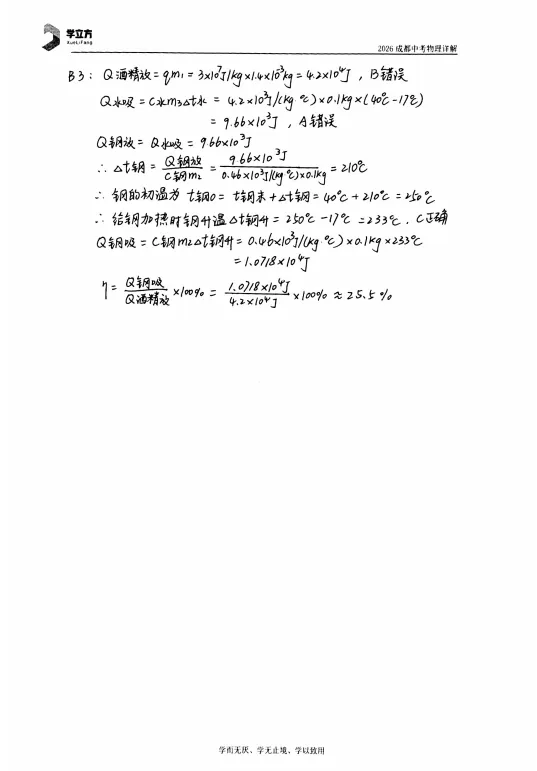 学立方
XueLiFang
2026成都中考物理详解
B3：Q酒精放=qm₁=3×10⁷J/kg×1.4×10⁻³kg=4.2×10⁴J，B错误
Q水吸=C水m₃△t水=4.2×10³J/(kg·℃)×0.1kg×(40℃-17℃)
=9.66×10³J，A错误
Q钢放=Q水吸=9.66×10³J
∴△t钢=Q钢放/C钢m₂=9.66×10³J/0.46×10³J/(kg·℃)×0.1kg=210℃
∴钢的初温为t钢0=t钢末+△t钢=40℃+210℃=250℃
∴给钢加热时钢升温△t钢升=250℃-17℃=233℃，C正确
Q钢吸=C钢m₂△t钢升=0.46×10³J/(kg·℃)×0.1kg×233℃
=1.0718×10⁴J
η=Q钢吸/Q酒精放×100%=1.0718×10⁴J/4.2×10⁴J×100%≈25.5%
学而无厌、学无止境、学以致用